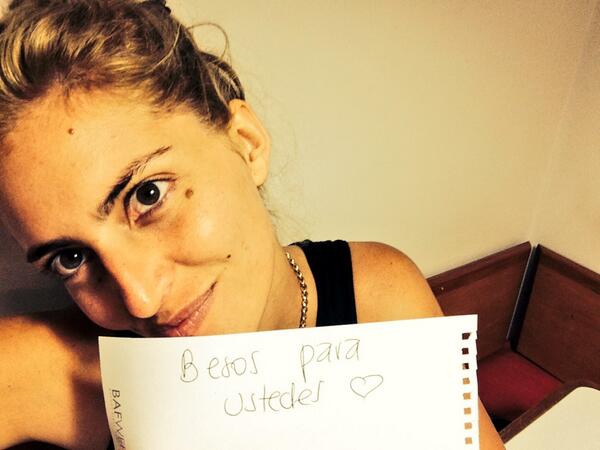 Besos para
ustedes ♡